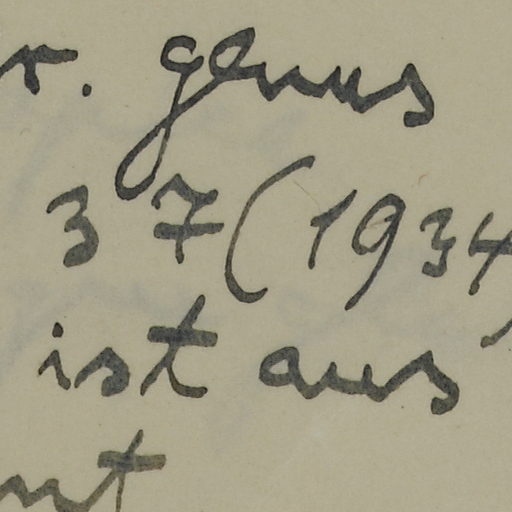 r. genus
37 (1934)
ist aus
nt